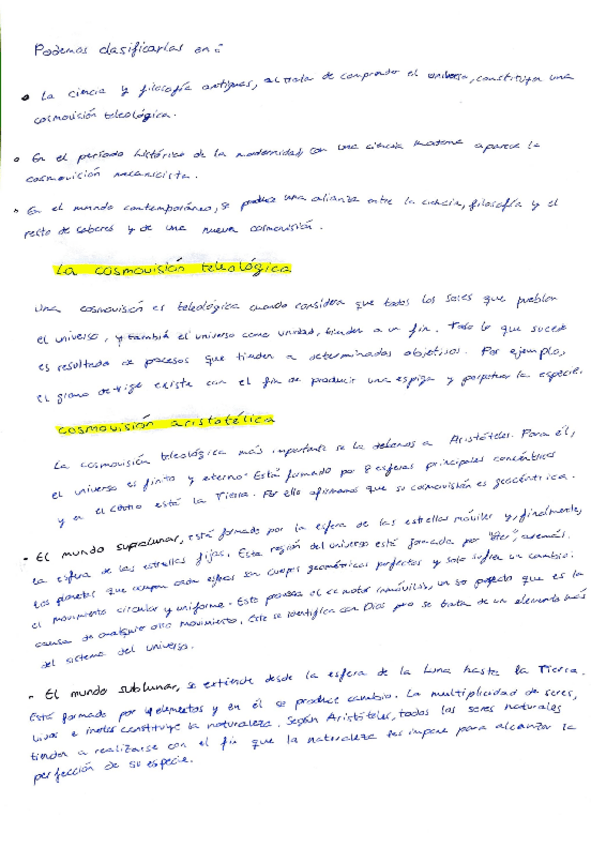 Podemos clasificarlas en :
• La ciencia y filosofía antiguas, al tratar de comprender el universo, constituyen una
cosmovisión teleológica.
• En el período histórico de la modernidad, con una ciencia moderna aparece la
cosmovisión mecanicista.
• En el mundo contemporáneo, se produce una alianza entre la ciencia, filosofía y el
resto de saberes y de una nueva cosmovisión.
La cosmovisión teleológica
Una cosmovisión es teleológica cuando considera que todos los seres que pueblan
el universo, y también el universo como unidad, tienden a un fin. Todo lo que sucede
es resultado de procesos que tienden a determinados objetivos. Por ejemplo,
el grano de trigo existe con el fin de producir una espiga y perpetuar la especie.
cosmovisión aristotélica
La cosmovisión teleológica más importante se la debemos a Aristóteles. Para él,
el universo es finito y eterno. Está formado por 8 esferas principales concéntricas
y en el centro está la Tierra. Por ello afirmamos que su cosmovisión es geocéntrica.
- El mundo supralunar, está formado por la esfera de las estrellas móviles y, finalmente,
la esfera de las estrellas fijas. Esta región del universo está formada por "éter", además.
Los planetas que ocupan cada esfera son cuerpos geométricos perfectos y solo sufren un cambio:
el movimiento circular y uniforme. Esto procesa el motor inmóvil, un ser perfecto que es la
causa de cualquier otro movimiento. Este se identifica con Dios pero se trata de un elemento más
del sistema del universo.
- El mundo sublunar, se extiende desde la esfera de la Luna hasta la Tierra.
Está formado por 4 elementos y en él se produce cambio. La multiplicidad de seres,
vivos e inertes constituye la naturaleza. Según Aristóteles, todos los seres naturales
tienden a realizarse con el fin que la naturaleza les impone para alcanzar la
perfección de su especie.